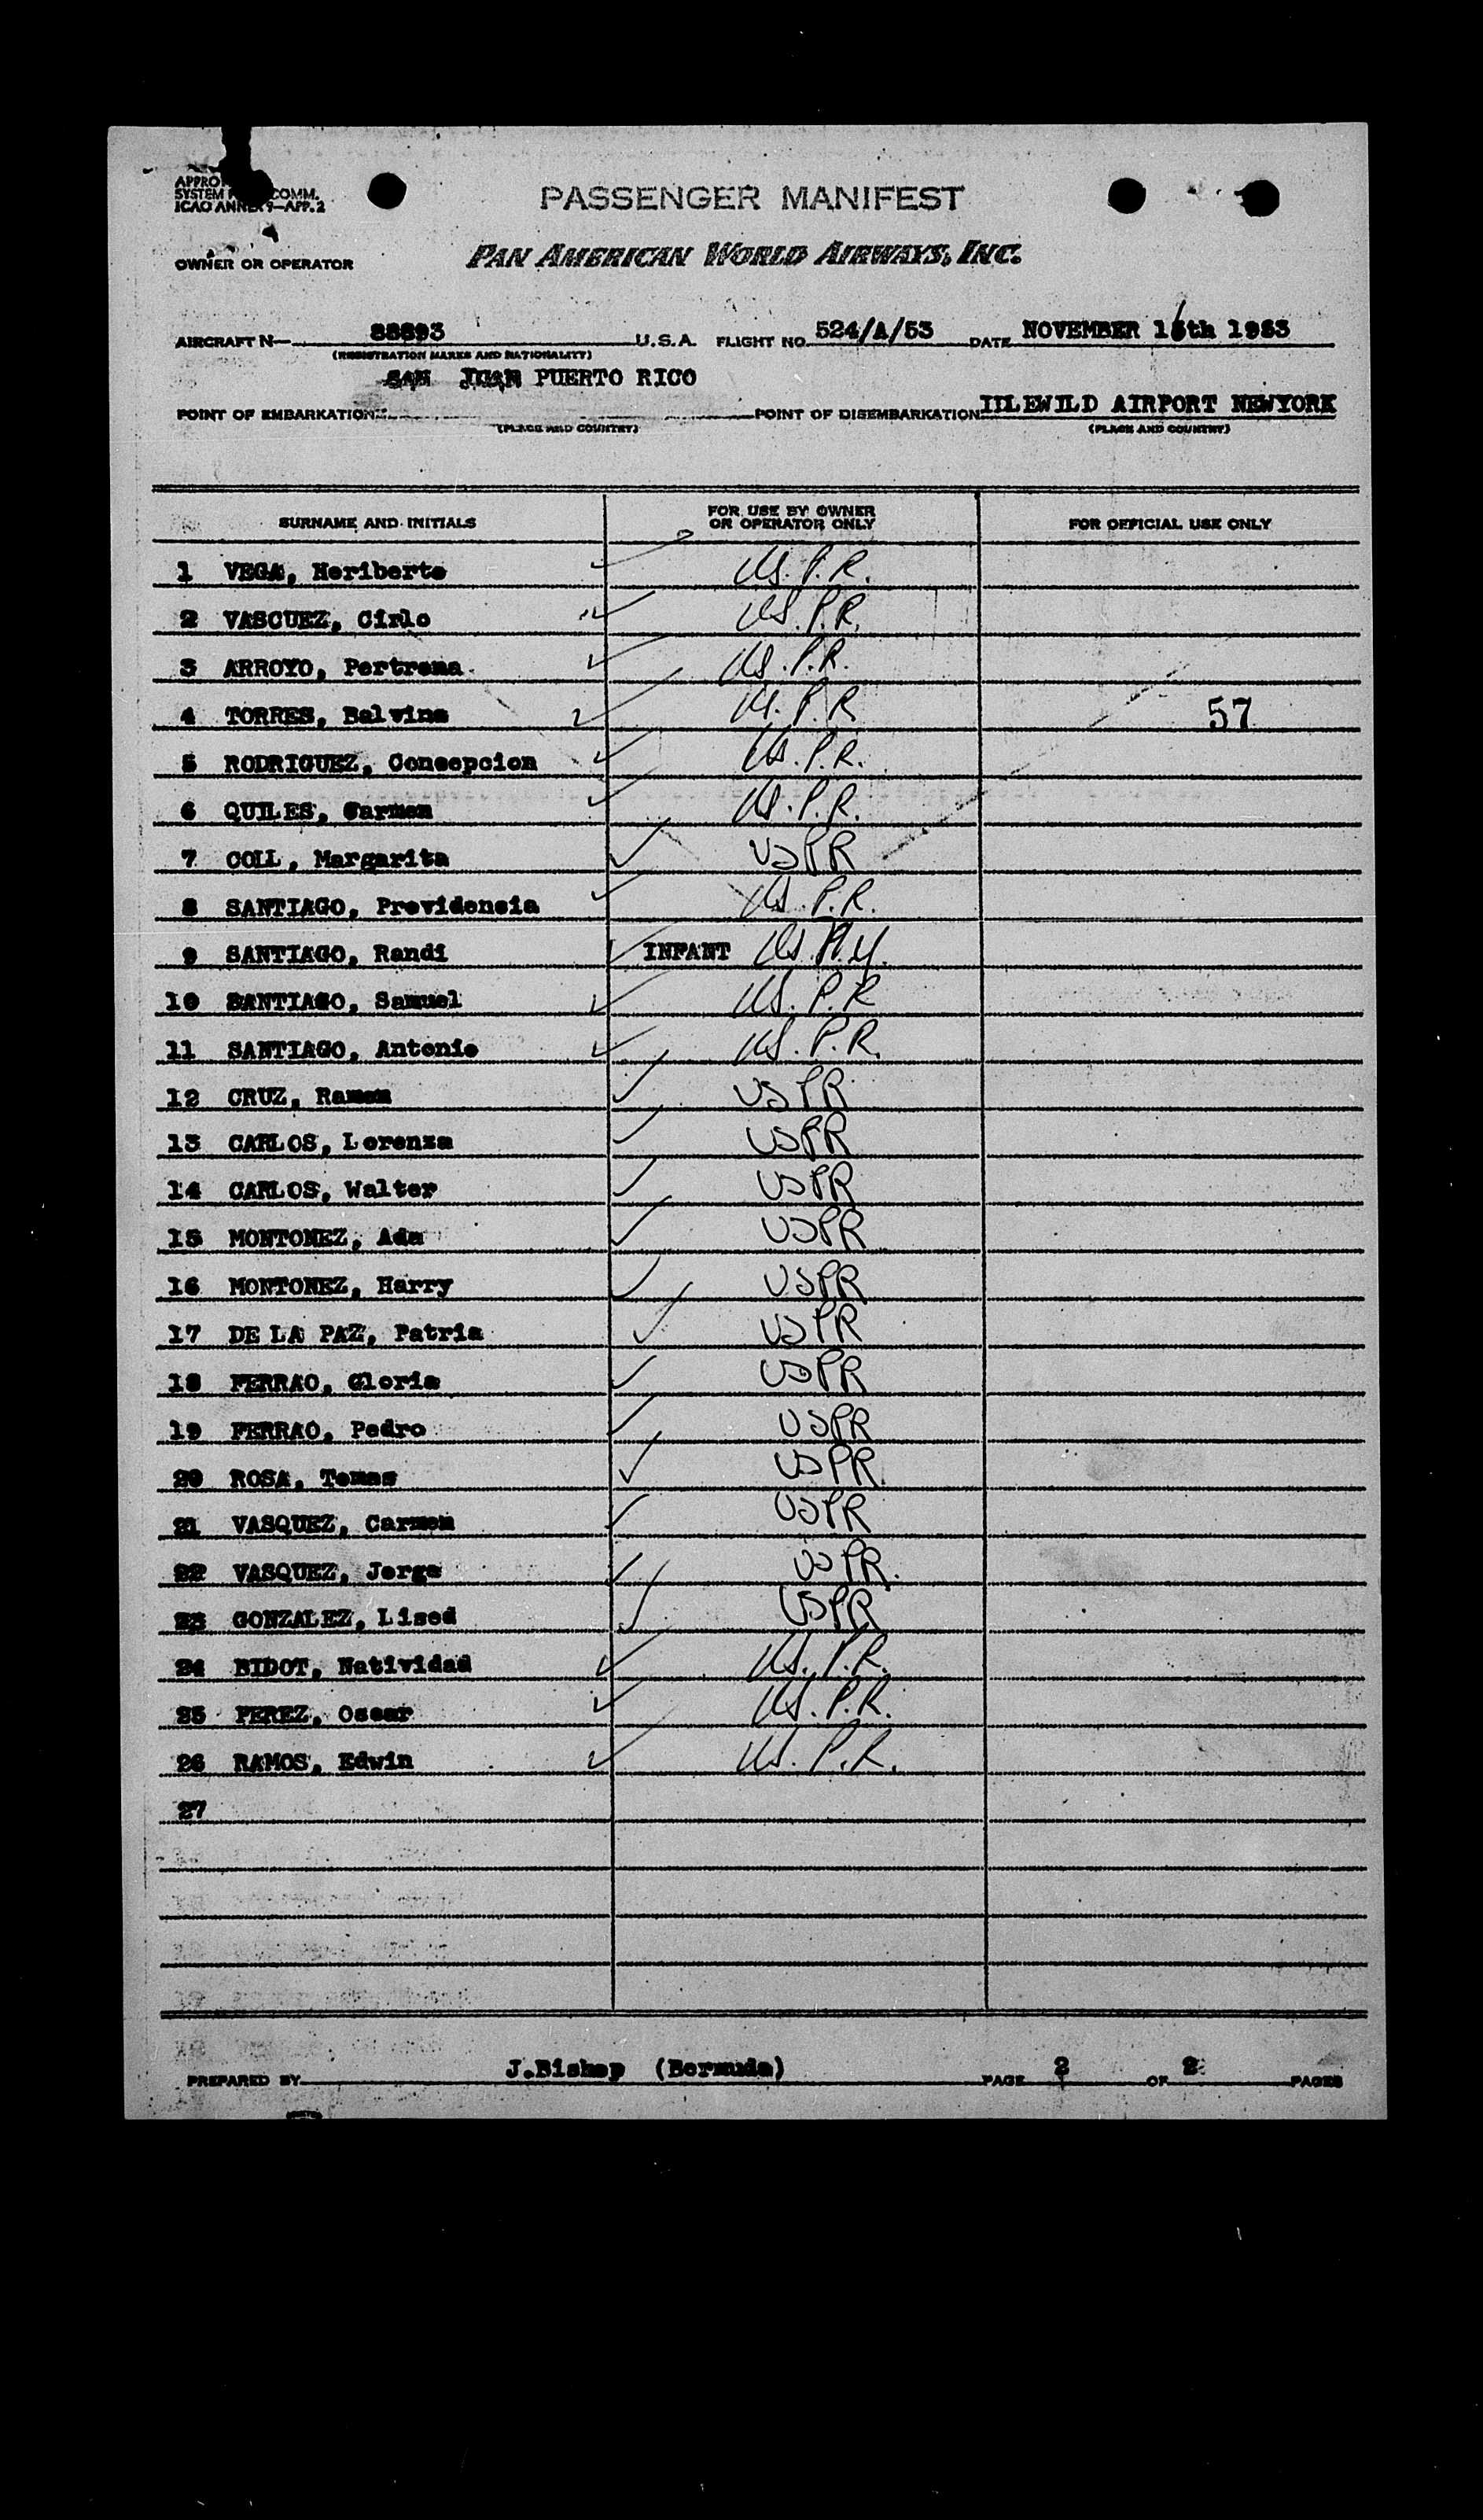 PASSENGER MANIFEST
SYSTEM COMM.
ICAO ANNEX 9—APP. 2
OWNER OR OPERATOR PAN AMERICAN WORLD AIRWAYS, INC.
AIRCRAFT N— 88893 U.S.A. FLIGHT NO. 524/A/53 DATE NOVEMBER 16th 1953
(REGISTRATION MARKS AND NATIONALITY)
SAN JUAN PUERTO RICO
POINT OF EMBARKATION POINT OF DISEMBARKATION IDLEWILD AIRPORT NEWYORK
(PLACE AND COUNTRY) (PLACE AND COUNTRY)
SURNAME AND INITIALS FOR USE BY OWNER OR OPERATOR ONLY FOR OFFICIAL USE ONLY
1 VEGA, Heriberto U.S. P.R.
2 VASCUEZ, Cirlo U.S. P.R.
3 ARROYO, Pertrona U.S. P.R.
4 TORRES, Balvina U. P. R 57
5 RODRIGUEZ, Concepcion U.S. P.R.
6 QUILES, Carmen U.S. P.R.
7 COLL, Margarita USPR
8 SANTIAGO, Providencia U.S. P.R.
9 SANTIAGO, Randi INFANT U.S. N.Y.
10 SANTIAGO, Samuel U.S. P.R
11 SANTIAGO, Antonio U.S. P.R.
12 CRUZ, Ramon USPR
13 CARLOS, Lorenza USPR
14 CARLOS, Walter USPR
15 MONTONEZ, Ada USPR
16 MONTONEZ, Harry USPR
17 DE LA PAZ, Patria USPR
18 FERRAO, Gloria USPR
19 FERRAO, Pedro USPR
20 ROSA, Tomas USPR
21 VASQUEZ, Carmen USPR
22 VASQUEZ, Jorge USPR.
23 GONZALEZ, Lised USPR
24 BIDOT, Natividad U.S. P.R.
25 PEREZ, Oscar U.S. P.R.
26 RAMOS, Edwin U.S. P.R.
27
PREPARED BY J.Bishop (Bermuda) PAGE 2 OF 2 PAGES